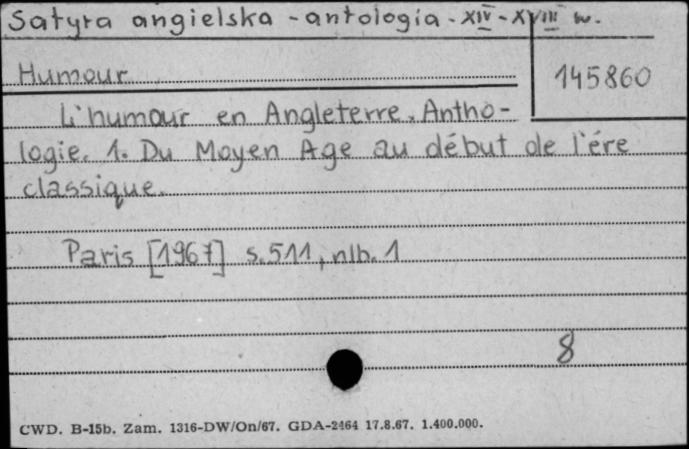 Satyra angielska - antologia - XIV - XVIII w.
Humour
145860
L'humour en Angleterre. Antho-
logie. 1. Du Moyen Age au début de l'ére
classique.
Paris [1967] s. 511, nlb. 1
8
CWD. B-15b. Zam. 1316-DW/On/67. GDA-2464 17.8.67. 1.400.000.